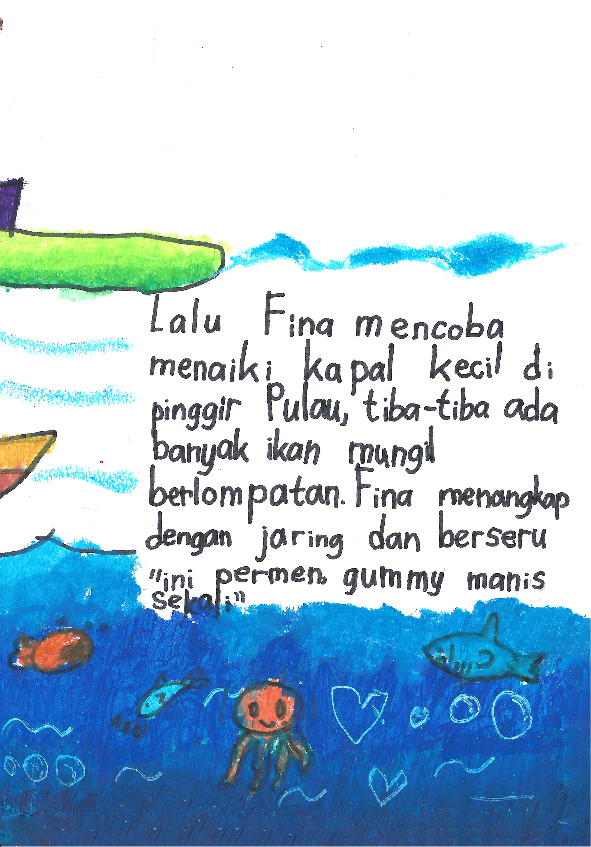 Lalu Fina mencoba
menaiki kapal kecil di
pinggir Pulau, tiba-tiba ada
banyak ikan mungil
berlompatan. Fina menangkap
dengan jaring dan berseru
"ini permen gummy manis
sekali"